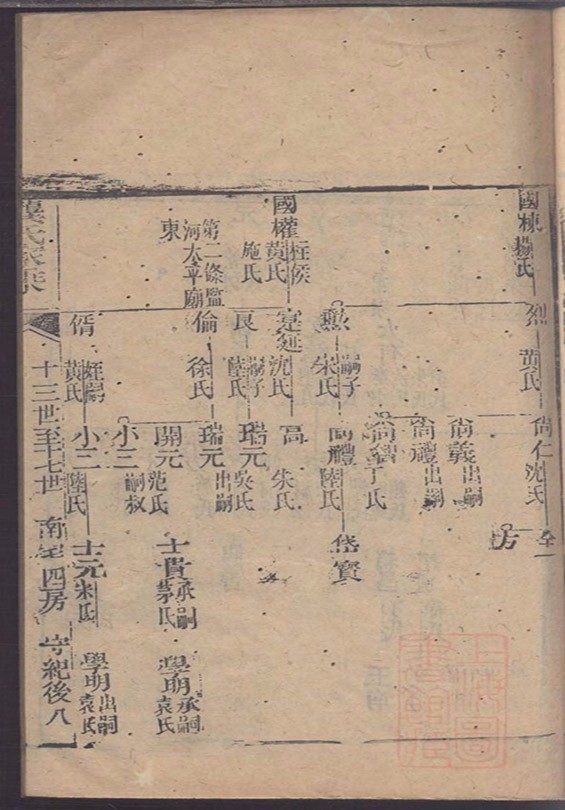 國棟
楊氏
烈
黃氏
尚仁
沈氏
尚義
出嗣
尚禮
出嗣
尚智
丁氏
方
國權
桂侯
黃氏
施氏
第二條監
河太平廟
東
嗣子
朱氏
尚禮
陸氏
岱寶
寔延
沈氏
高
朱氏
良
嗣子
陸氏
瑞元
吳氏
倫
徐氏
瑞元
出嗣
開元
范氏
士貴
承嗣
學明
承嗣
袁氏
小三
嗣叔
黃氏
小二
陸氏
士元
朱氏
學明
出嗣
袁氏
十三世至十七世
四房
守紀後八